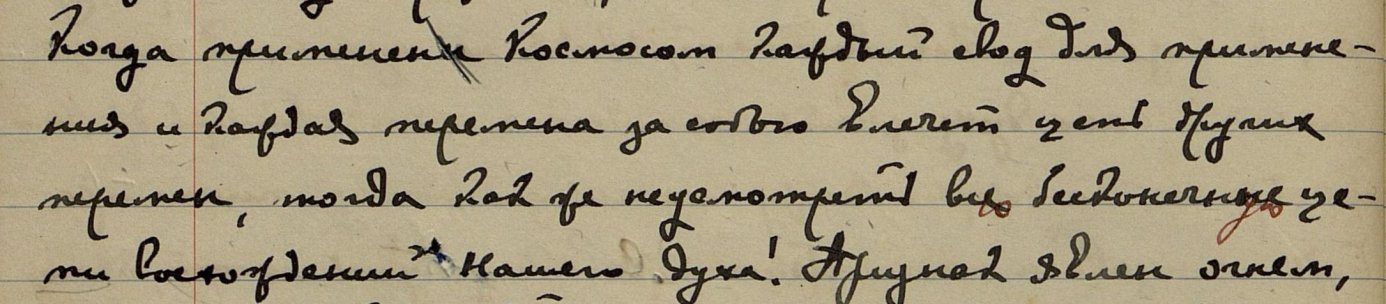 Когда применен Космосом каждый свод для примене-
ния и каждая перемена за собою влечет цепь других
перемен, тогда как же неусмотреть все бесконечные це-
пи восхождений нашего духа! Признак явлен огнем,